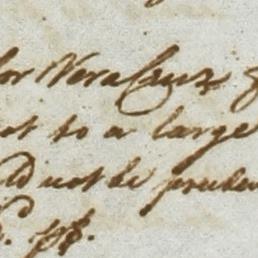 for Vera Cruz
not to a large
ld not be pruden